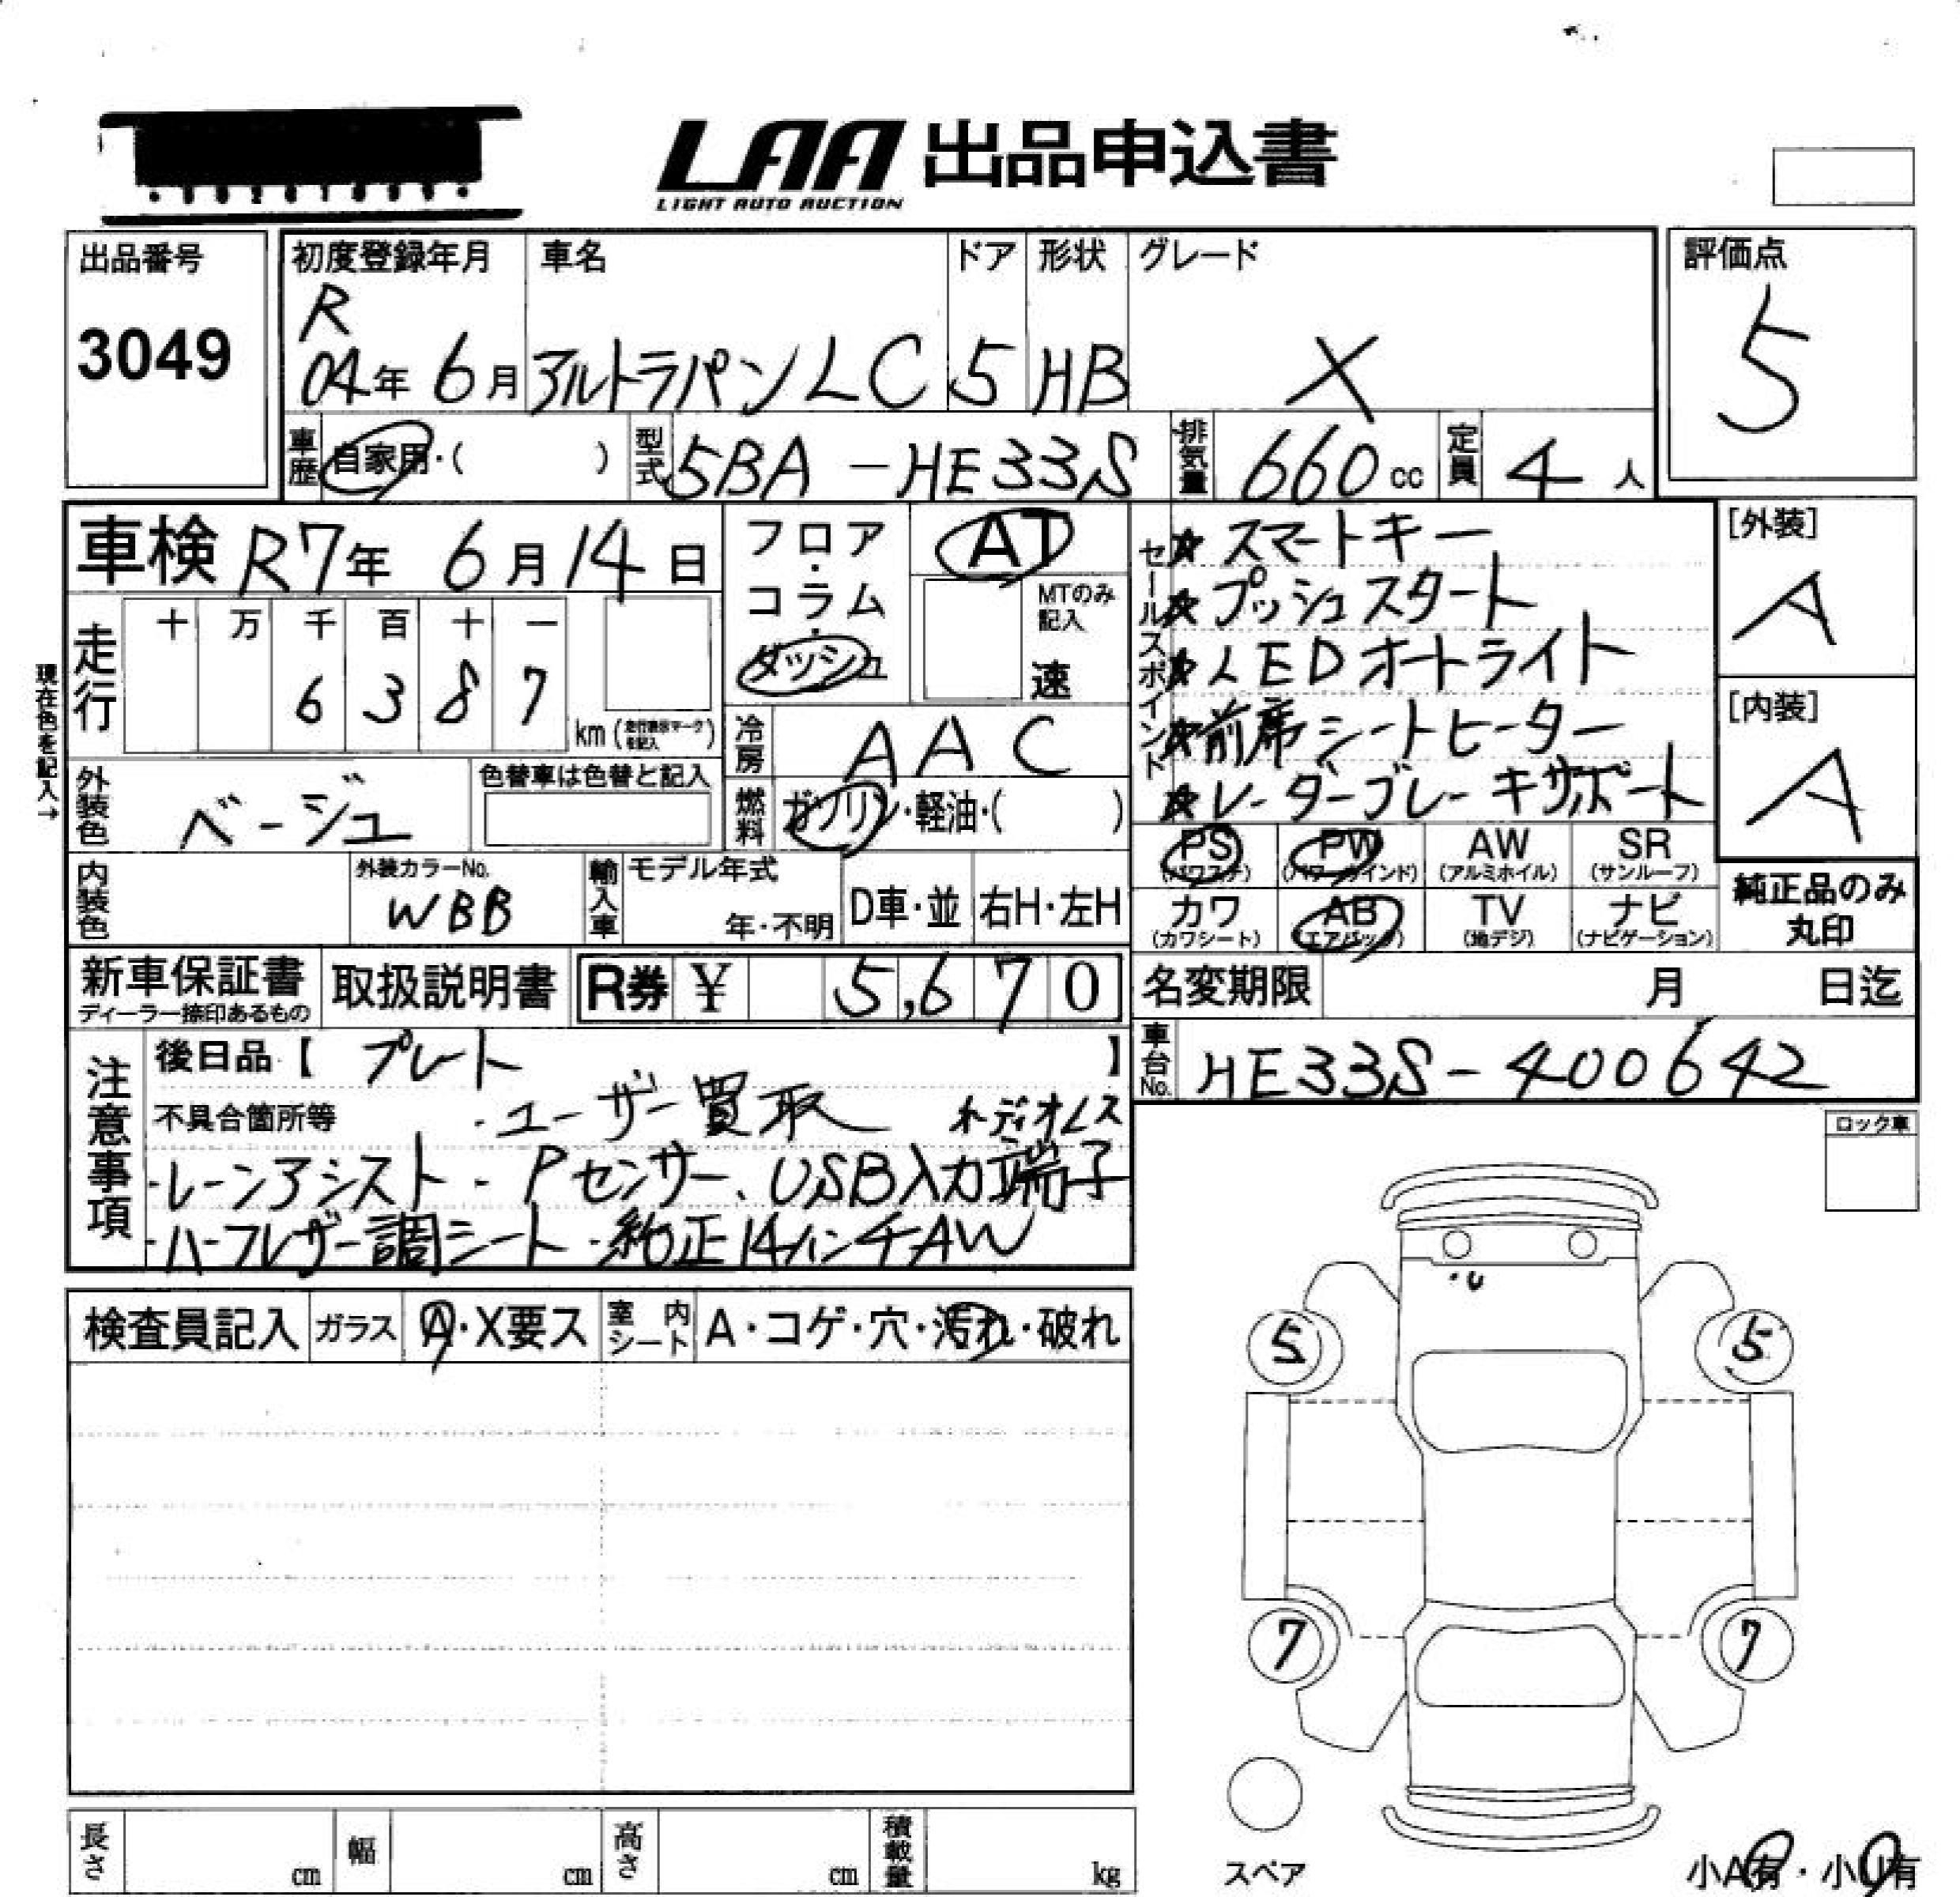 LAA 出品申込書
LIGHT AUTO AUCTION
出品番号
3049
初度登録年月
R
04年 6月
車名
アルトラパンLC
ドア
5
形状
HB
グレード
X
評価点
5
車歴 自家用・( )
型式 5BA-HE33S
排気量 660cc
定員 4人
車検 R7年 6月14日
走行
十 万 千 百 十 一
6 3 8 7
km (走行表示マークを記入)
現在色を記入→
フロア・コラム・ダッシュ
AT
MTのみ記入
速
セールスポイント
☆スマートキー
☆プッシュスタート
☆LEDオートライト
☆前席シートヒーター
☆レーダーブレーキサポート
[外装]
A
[内装]
A
冷房 AAC
外装色 ベージュ
色替車は色替と記入
燃料 ガソリン・軽油・( )
内装色
外装カラーNo.
WBB
輸入車
モデル年式
年・不明
D車・並
右H・左H
PS
(パワステ)
PW
(パワーウインド)
AW
(アルミホイル)
SR
(サンルーフ)
カワ
(カワシート)
AB
(エアバック)
TV
(地デジ)
ナビ
(ナビゲーション)
純正品のみ
丸印
新車保証書
ディーラー捺印あるもの
取扱説明書
R券 ¥ 5,670
名変期限 月 日迄
車台No. HE33S-400642
注意事項
後日品【 プレート 】
不具合箇所等 ・ユーザー買取 オーディオレス
・レーンアシスト・Pセンサー、USB入力端子
・ハーフレザー調シート・純正14インチAW
ロック車
検査員記入 ガラス A・X要ス 室内シート A・コゲ・穴・汚れ・破れ
・U
5 5
7 7
スペア
小A有・小U有
長さ cm 幅 cm 高さ cm 積載量 kg